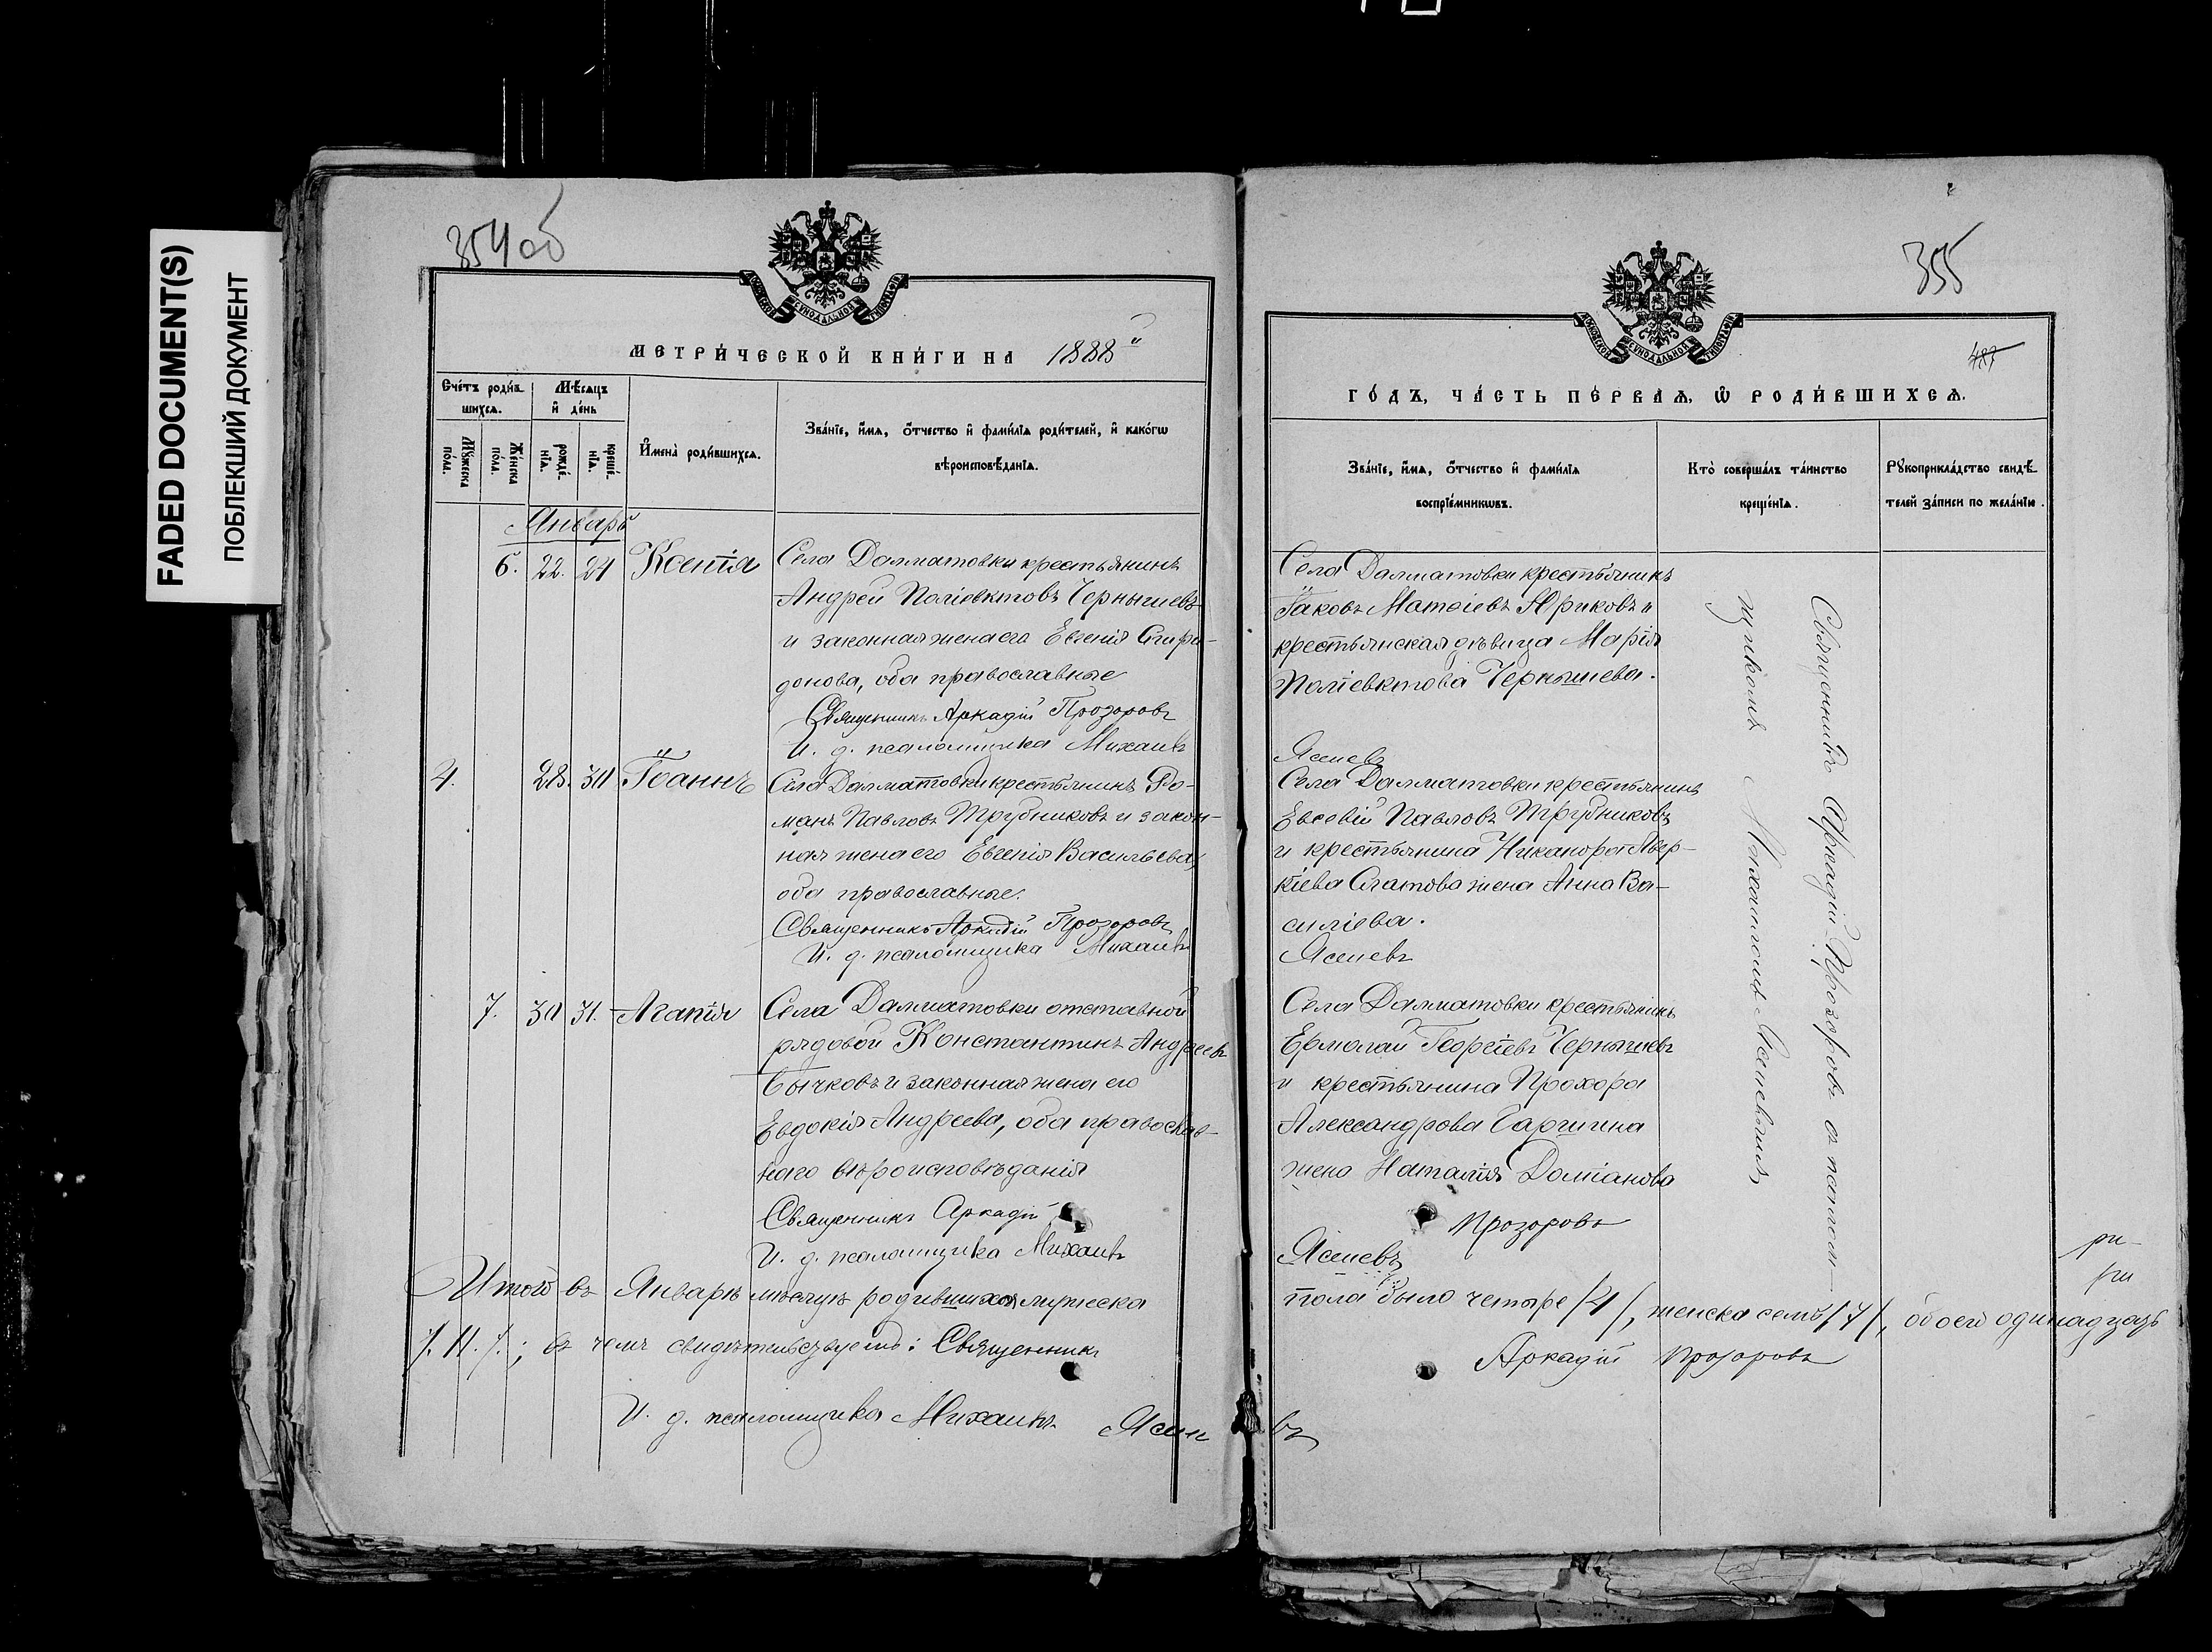 FADED DOCUMENT(S)
ПОБЛЕКШИЙ ДОКУМЕНТ
354 об
МЕТРИ́ЧЕСКОЙ КНИ́ГИ НА 1888й
Сче́тъ роди́в-
шихся.
Мѣ́сяцъ
и҆ де́нь
Мꙋ́жеска
по́ла.
Же́нска
по́ла.
рожде́-
нїѧ.
креще́-
нїѧ.
И҆мена̀ роди́вшихсѧ.
Зва́нїе, и҆́мѧ, ѻ҆́тчество и҆ фами́лїѧ роди́телей, и҆ како́гѡ
вѣроисповѣ́данїѧ.
Январь
6. 22. 24 Ксенія
Села Далматовки крестьянинъ
Андрей Поліевктовъ Чернышевъ
и законная жена его Евгенія Спири-
донова, оба православные
Священникъ Аркадій Прозоровъ
И. д. псаломщика Михаилъ
4. 28. 30 Іоаннъ
Села Далматовки крестьянинъ Ро-
манъ Павловъ Трубниковъ и закон-
ная жена его Евгенія Васильева,
оба православные.
Священникъ Аркадій Прозоровъ
И. д. псаломщика Михаилъ
7. 30 31. Агапія
Села Далматовки отставной
рядовой Константинъ Андреевъ
Бычковъ и законная жена его
Евдокія Андреева, оба православ-
наго вѣроисповѣданія
Священникъ Аркадій
И. д. псаломщика Михаилъ
Итого въ Январѣ мѣсяцѣ родившихся мужеска
/.11./.; въ чемъ свидѣтельствуемъ: Священникъ
И. д. псаломщика Михаилъ Ясене
355
487
ГО́ДЪ, ЧА́СТЬ ПЕ́РВАѦ, Ѡ҆ РОДИ́ВШИХСѦ.
Зва́нїе, и҆́мѧ, ѻ҆́тчество и҆ фами́лїѧ
воспрїе́мникѡвъ.
Кто̀ соверша́лъ та́инство
креще́нїѧ.
Рꙋкоприкла́дство свидѣ́-
телей за́писи по жела́нїю.
Села Далматовки крестьянинъ
Іаковъ Матѳіевъ Юриковъ и
крестьянская дѣвица Марія
Поліевктова Чернышева.
Ясеневъ
Села Далматовки крестьянинъ
Евсевій Павловъ Трубниковъ
и крестьянина Никанора Авер-
кіева Слатова жена Анна Ва-
силіева.
Ясеневъ
Села Далматовки крестьянинъ
Ермолай Георгіевъ Чернышевъ
и крестьянина Прохора
Александрова Гаршина
жена Наталія Доміанова
Прозоровъ
Ясеневъ
Священникъ Аркадій Прозоровъ съ псалом-
щикомъ Михаиломъ Ясеневымъ
пола было четыре /4/, женска семь /7/, обоего одинадцать
Аркадій Прозоровъ
въ